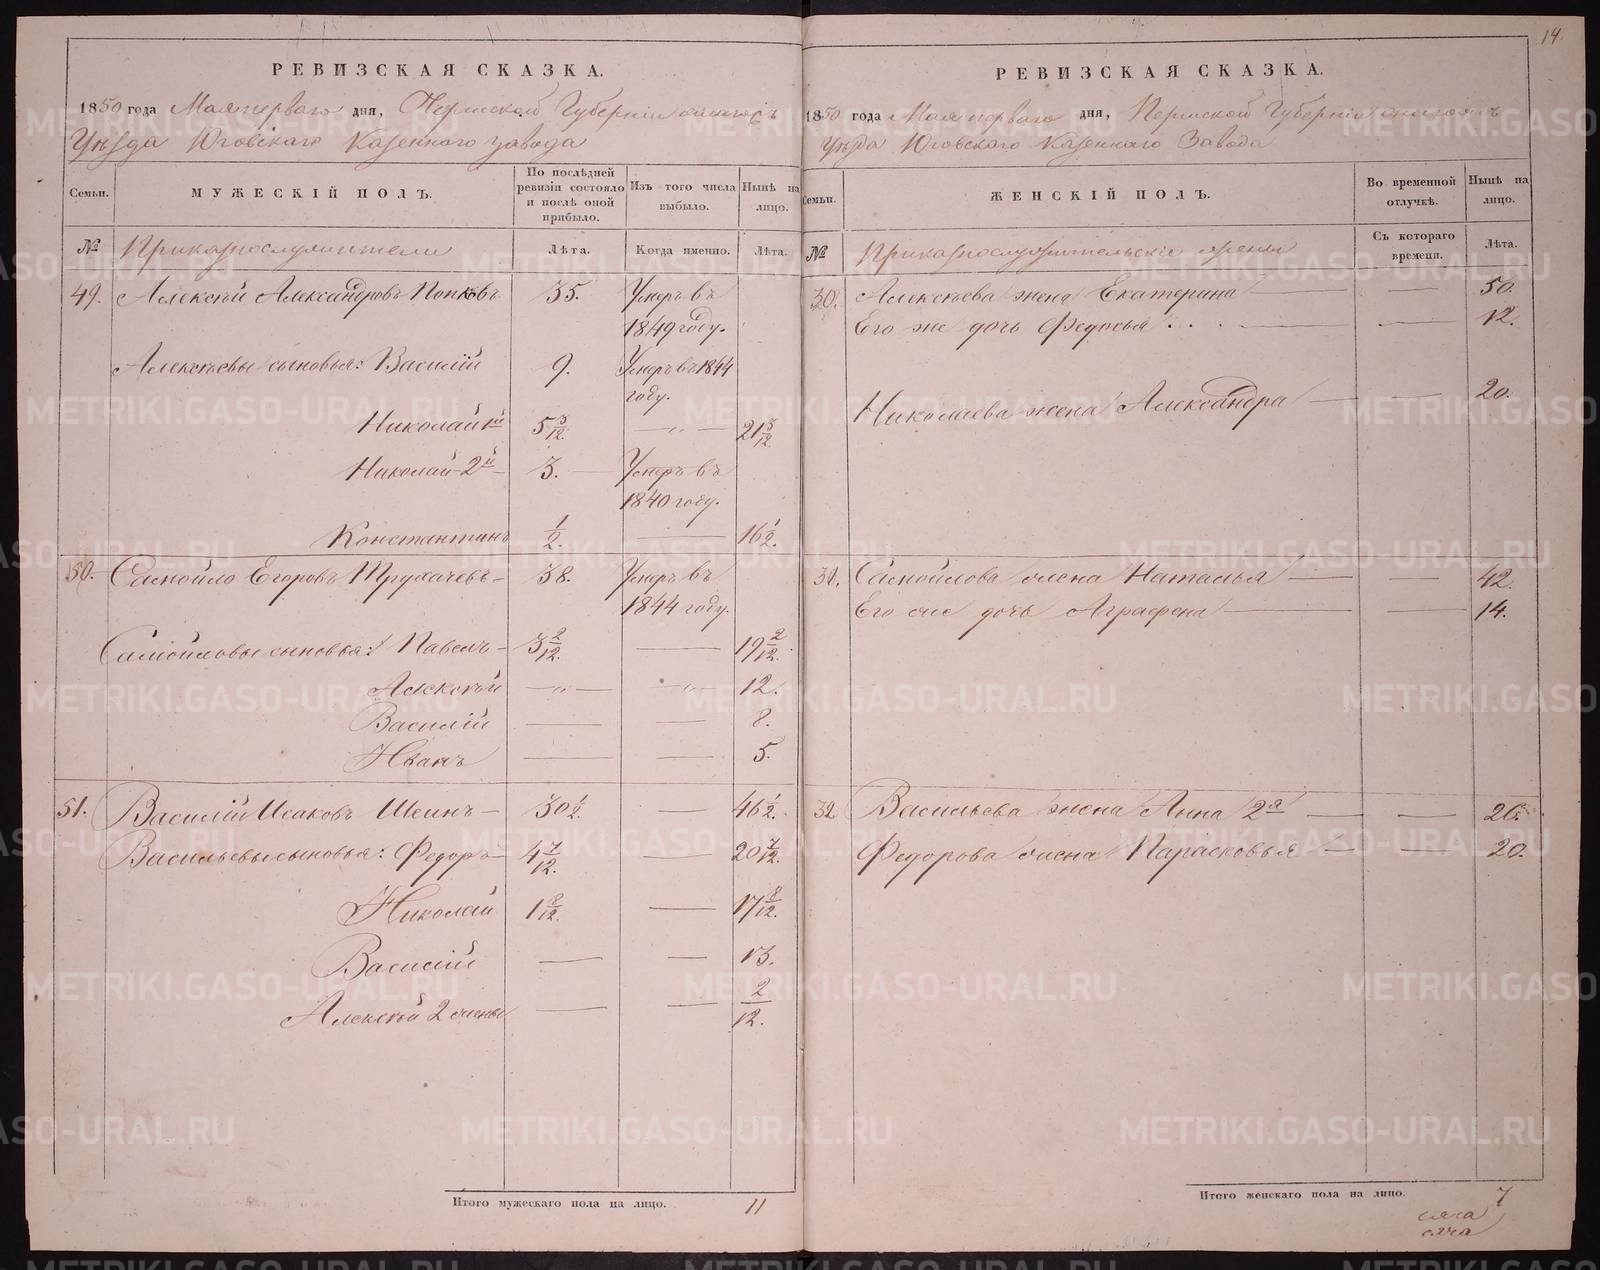 14.
РЕВИЗСКАЯ СКАЗКА.
1850 года Мая перваго дня, Пермской Губернiи
Уѣзда Юговскаго Казеннаго завода
Семьи.
МУЖЕСКIЙ ПОЛЪ.
По послѣдней ревизiи состояло и послѣ оной прибыло.
Изъ того числа выбыло.
Нынѣ на лицо.
№
Приказнослужители
Лѣта.
Когда именно.
Лѣта.
49. Алексѣй Александровъ Попковъ 35. Умеръ въ
1849 году.
Алексѣевы сыновья: Василiй 9. Умеръ въ 1844
году.
Николай 1й 5 3/12. — „ — 21 3/12
Николай 2й — 3. — Умеръ въ
1840 году.
Константинъ 1/2. — 16 1/2.
50. Самойло Егоровъ Трухачевъ — 38. Умеръ въ
1844 году.
Самойловы сыновья: Павелъ — 3 2/12. — 19 2/12.
Алексѣй — „ — — „ — 12.
Василiй — — 8.
Иванъ — — 5.
51. Василiй Исаковъ Шеинъ — 30 1/2. — 46 1/2.
Васильевы сыновья: Федоръ — 4 7/12. — 20 7/12.
Николай 1 8/12. — 17 8/12.
Василiй — — 13.
Алексѣй 2 жены — — 2/12.
Итого мужескаго пола на лицо. 11
РЕВИЗСКАЯ СКАЗКА.
1850 года Мая перваго дня, Пермской Губернiи
Уѣзда Юговскаго Казеннаго Завода
Семьи.
ЖЕНСКIЙ ПОЛЪ.
Во временной отлучкѣ.
Нынѣ на лицо.
№
Приказнослужительскiе жены
Съ котораго времени.
Лѣта.
30. Алексѣева жена Екатерина — — 50.
Его же дочь Федосья . . . — — 12.
Николаева жена Александра — — 20.
31. Самойлова жена Наталья — — 42.
Его же дочь Аграфена — — 14.
32 Васильева жена Анна 2я — — 26.
Федорова жена Парасковья — — 20.
Итого женскаго пола на лицо. 7